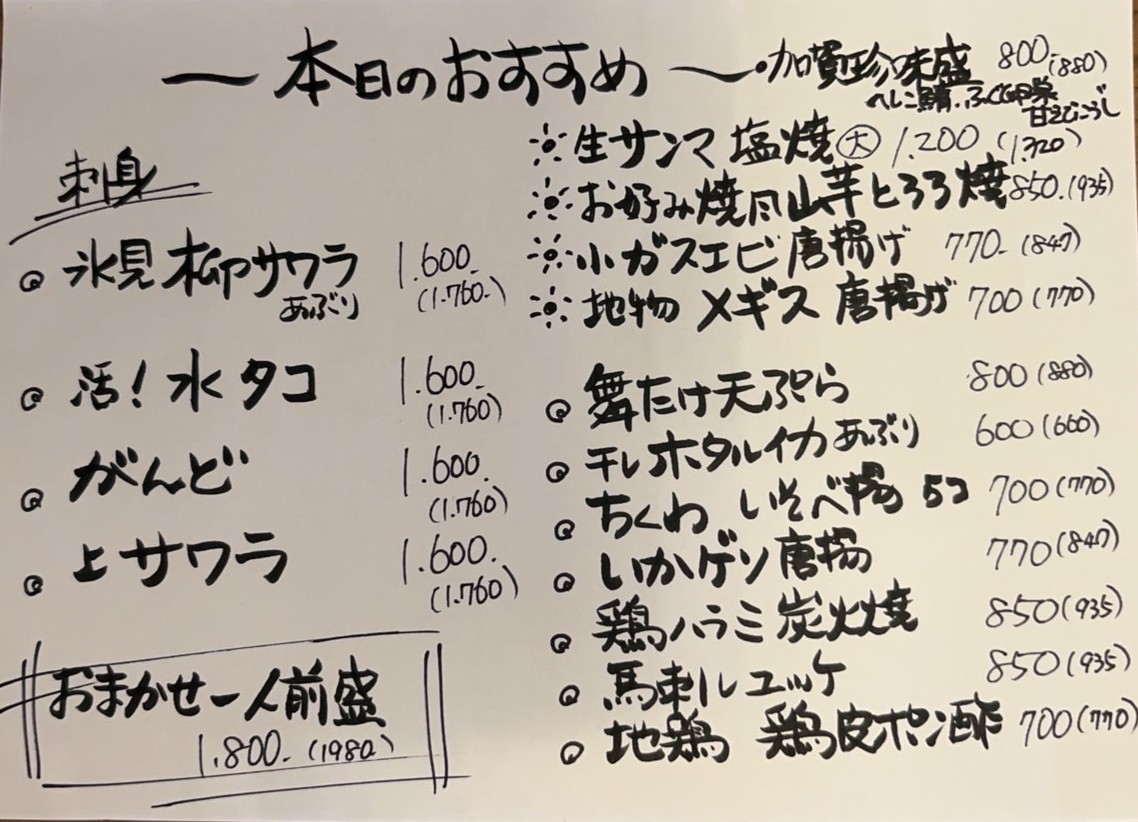 〜 本日のおすすめ 〜
刺身
氷見 柳サワラ 1.600-
あぶり (1.760-)
活！水タコ 1.600-
(1.760)
がんど 1.600.
(1.760)
上サワラ 1.600.
(1.760)
おまかせ一人前盛
1.800- (1980)
・加賀珍味盛 800- (880)
へしこ鯖.ふぐ卵巣
甘えびこうじ
生サンマ 塩焼 大 1.200 (1.320)
お好み焼風山芋とろろ焼 850.(935)
小ガスエビ唐揚げ 770-(847)
地物 メギス 唐揚げ 700(770)
舞たけ天ぷら 800(880)
干しホタルイカあぶり 600(660)
ちくわ いそべ揚 5コ 700(770)
いかゲソ唐揚 770(847)
鶏ハラミ炭火焼 850(935)
馬刺しユッケ 850(935)
地鶏 鶏皮ポン酢 700(770)